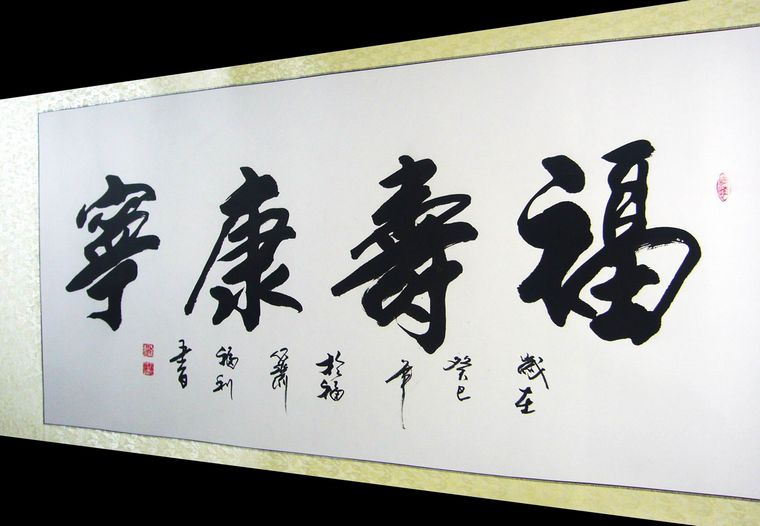 福壽康寧
歲在
癸巳
年
於福
蕭
福利
書